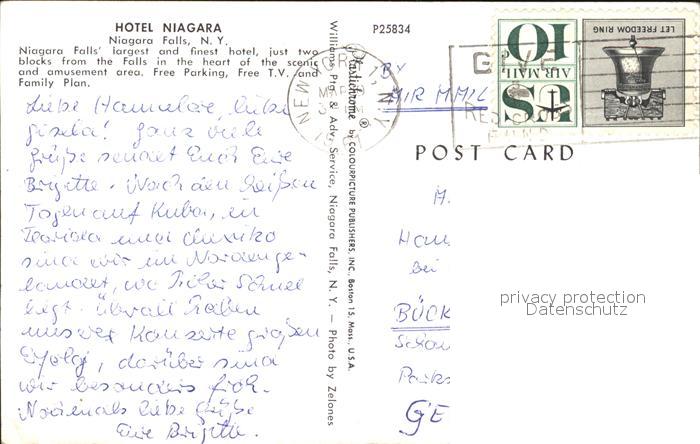 HOTEL NIAGARA
Niagara Falls, N. Y.
Niagara Falls' largest and finest hotel, just two
blocks from the Falls in the heart of the scenic
and amusement area. Free Parking, Free T.V. and
Family Plan.
Liebe Hannelore, liebe
Gisela! Ganz viele
Grüße sendet Euch Eure
Brigitte. Nach den heißen
Tagen auf Kuba, in
Florida und Mexiko
sind wir im Norden ge-
landet, wo hier Schnee
liegt. Überall haben
unsere Konzerte großen
Erfolg, darüber sind
wir besonders froh.
Nochmals liebe Grüße
Eure Brigitte.
Williams Ptg. & Adv. Service, Niagara Falls, N. Y. — Photo by Zelones
Plastichrome ® by COLOURPICTURE PUBLISHERS, INC., Boston 15, Mass., U.S.A.
P25834
NEW YORK, N.Y.
MAR
GIVE
RED CROSS
FUND
US
AIR MAIL
10
LET FREEDOM RING
BY
AIR MAIL
POST CARD
H.
Han
bei
BÜCK
Schau
Parks
GE
privacy protection
Datenschutz